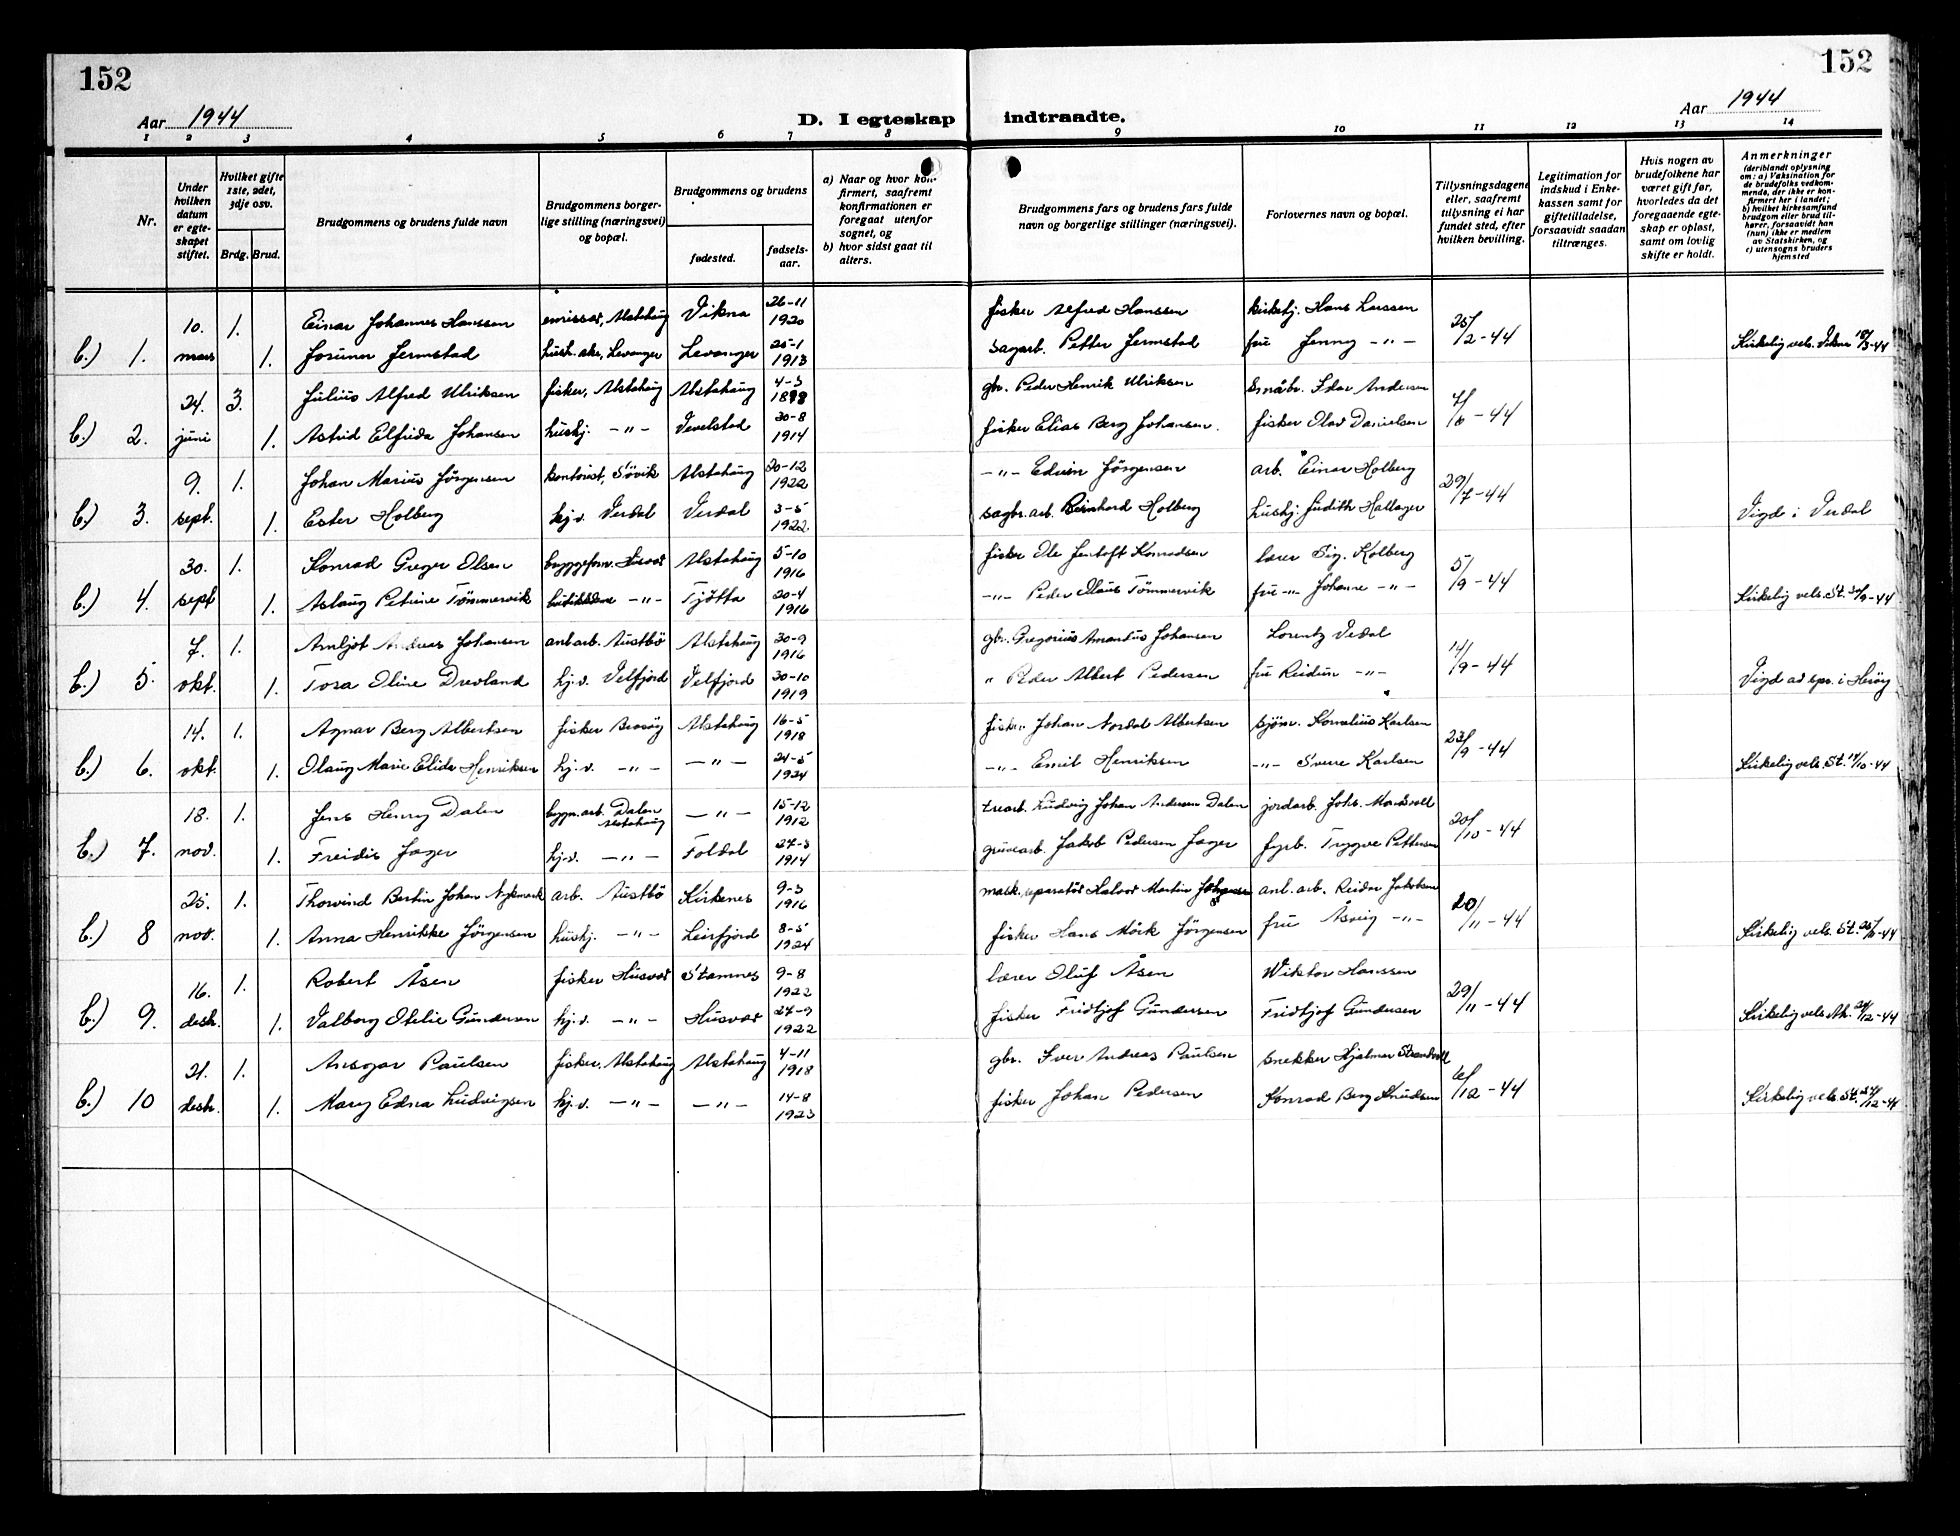 152
152
Aar 1944
D. I egteskap indtraadte.
Aar 1944
1 2 3 4 5 6 7 8 9 10 11 12 13 14
Nr.
Under hvilken datum er egteskapet stiftet.
Hvilket gifte 1ste, 2det, 3dje osv.
Brdg. Brud.
Brudgommens og brudens fulde navn
Brudgommens borgerlige stilling (næringsvei) og bopæl.
Brudgommens og brudens
fødested.
fødselsaar.
a) Naar og hvor konfirmert, saafremt konfirmationen er foregaat utenfor sognet, og
b) hvor sidst gaat til alters.
Brudgommens fars og brudens fars fulde navn og borgerlige stillinger (næringsvei).
Forlovernes navn og bopæl.
Tillysningsdagene eller, saafremt tillysning ei har fundet sted, efter hvilken bevilling.
Legitimation for indskud i Enkekassen samt for giftetilladelse, forsaavidt saadan tiltrænges.
Hvis nogen av brudefolkene har været gift før, hvorledes da det foregaaende egteskap er opløst, samt om lovlig skifte er holdt.
Anmerkninger
(deriblandt oplysning om: a) Vaksination for de brudefolks vedkommende, der ikke er konfirmert her i landet; b) hvilket kirkesamfund brudgom eller brud tilhører, forsaavidt han (hun) ikke er medlem av Statskirken, og c) utensogns bruders hjemsted
10. 1. Einar Johannes Hanssen emissær, Alstahaug Vikna 26-11 1920 fisker Alfred Hanssen kirketj. Hans Larssen 25/2-44
b.) 1. mars 1. Josuner Jermstad hush. aks, Levanger Levanger 25-1 1913 sagarb. Petter Jermstad fru Jenny -"- Kirkelig vels. Vikna 18/3-44
24. 3. Julius Alfred Ulriksen fisker, Alstahaug Alstahaug 4-3 1898 gbr. Peder Henrik Ulriksen småbr. Idar Andersen 7/6-44
b.) 2. juni 1. Astrid Elfrida Johansen hushj. -"- Vevelstad 30-8 1914 fisker Elias Berg Johansen. fisker Olav Danielsen
9. 1. Johan Marius Jørgensen kontorist, Søvik Alstahaug 20-12 1922 -"- Edvin Jørgensen arb. Einar Holberg 29/7-44
b.) 3. sept. 1. Ester Holberg hj.v. Verdal Verdal 3-5 1922. sagbr. arb. Bernhard Holberg hushj. Judith Hallager Vigd i Verdal
30. 1. Konrad Greger Olsen byggeform. Husvær Alstahaug 5-10 1916 fisker Ole Jentoft Konradsen lærer Sig. Kolberg 5/9-44
b.) 4. sept 1. Aslaug Petrine Tømmervik -"- Tjøtta 20-4 1916 -"- Peder Olaus Tømmervik fru -"- Johanne -"- Kirkelig vels. St. 30/9-44
7. 1. Arnljot Andreas Johansen anl.arb. Austbø Alstahaug 30-9 1916 gbr. Gregorius Amandus Johansen Lorentz Vedal 14/9-44
b.) 5. okt. 1. Tora Oline Drevland hj.v. Velfjord Velfjord 30-10 1919 " Peder Albert Pedersen fru Reidun -"- Vigd av spr. i Herøy
14. 1. Agnar Berg Albertsen fisker Belsøy Alstahaug 16-5 1918 fisker Johan Nordal Albertsen sjøm. Kornelius Karlsen 23/9-44
b.) 6. okt. 1. Olaug Marie Elida Henriksen hj.v. -"- -"- 24-5 1924 -"- Emil Henriksen -"- Sverre Karlsen Kirkelig vels. St. 14/10-44
18. 1. Jens Henry Dalen bygn.arb. Dalen Alstahaug -"- 15-12 1912 trearb. Ludvig Johan Andersen Dalen jordarb. Johs. Mardsvoll 20/10-44
b.) 7. nov. 1. Freidis Jager hj.v. -"- Foldal 27-3 1914 gruvearb. Jakob Pedersen Jager fyrb. Trygve Pettersen
25. 1. Thorvind Bertin Johan Nykmark arb. Austbø Kirkenes 9-3 1916 mask. reparatør Halvor Martin Johansen anl. arb. Reidar Jakobsen 20/11-44
b.) 8 nov. 1. Anna Henrikke Jørgensen hushj. -"- Leirfjord 8-5 1924 fisker Hans Mörk Jørgensen fru Åsveig -"- Kirkelig vels. St. 25/11-44
16. 1. Robert Åsen fisker Husvær Stamnes 9-8 1922 lærer Oluf Åsen Wiktor Hanssen 29/11-44
b.) 9. desbr. 1. Valborg Otelie Gundersen hj.v. -"- Husvær 27-9 1922 fisker Fridtjof Gundersen Fridtjof Gundersen Kirkelig vels. Ah. 26/12-44
21. 1. Ansgar Paulsen fisker, Alstahaug Alstahaug 4-11 1918 gbr. Iver Andreas Paulsen snekker Hjalmar Strandvoll 6/12-44
b.) 10 desbr. 1. Mary Edna Ludvigsen hj.v. -"- -"- 14-8 1923 fisker Johan Pedersen Konrad Berg Knudsen Kirkelig vels. St. 24/12-44